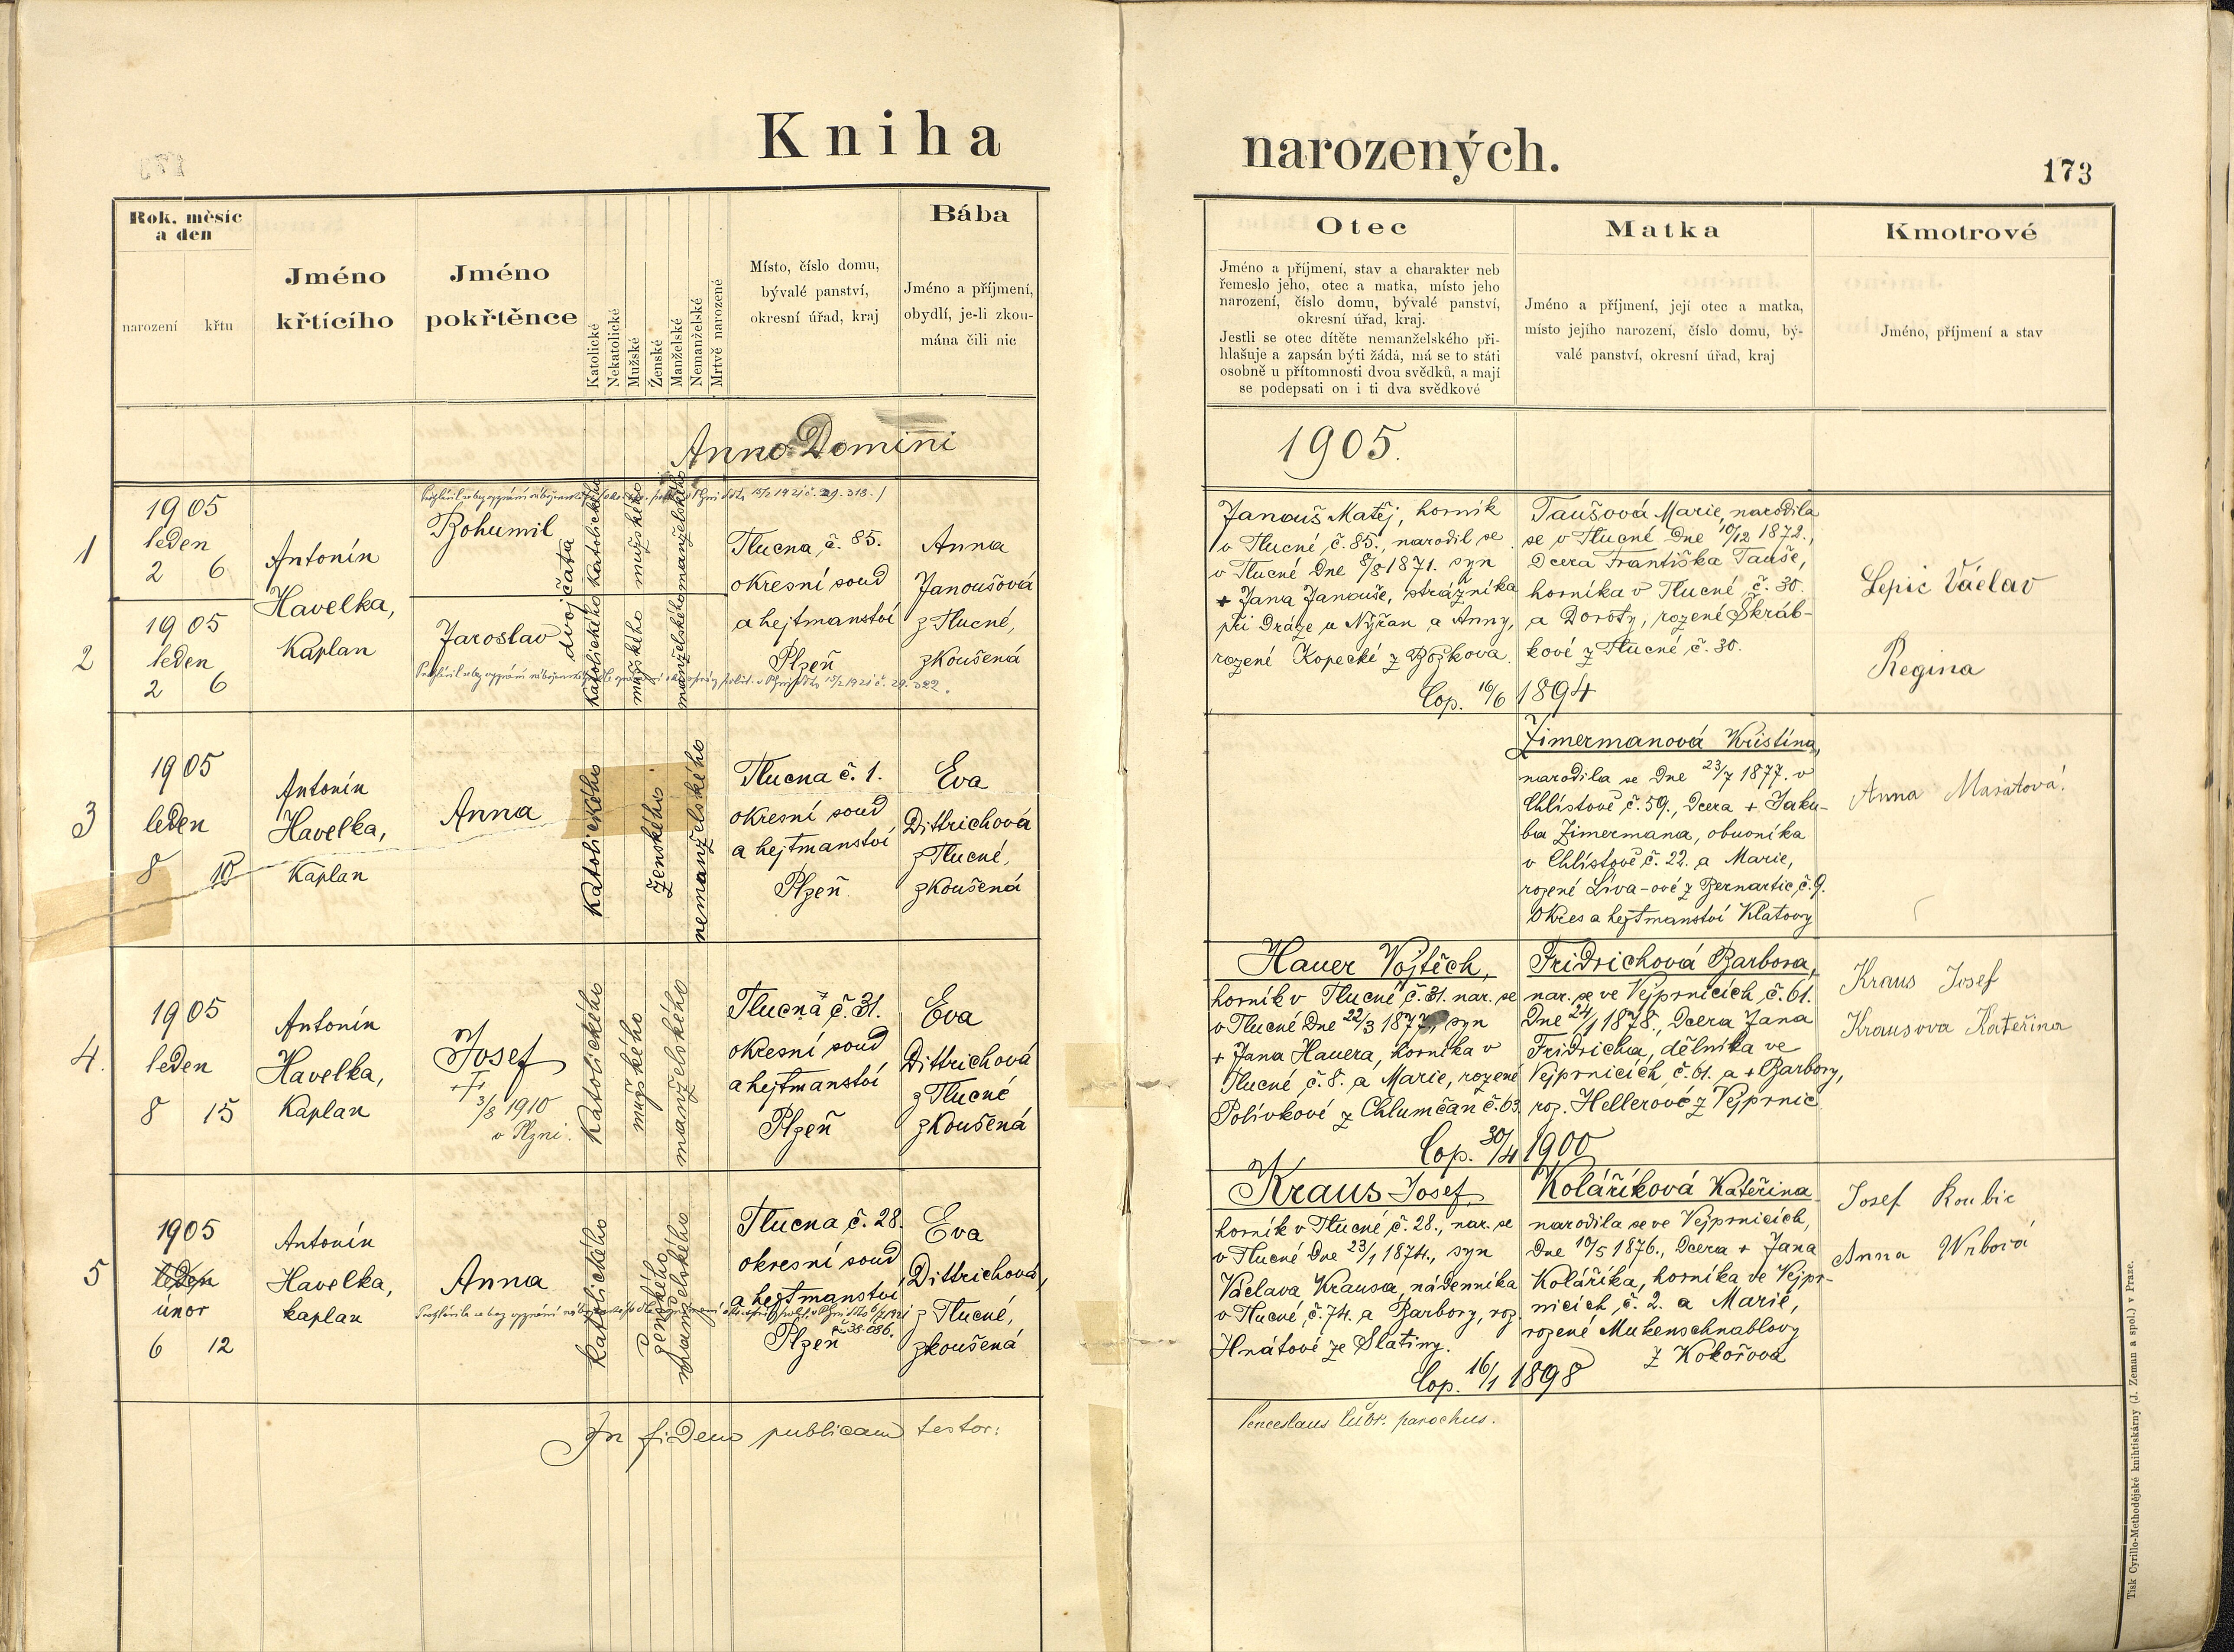 Kniha
narozených.
173
Rok, měsíc
a den
narození
křtu
Jméno
křtícího
Jméno
pokřtěnce
Katolické
Nekatolické
Mužské
Ženské
Manželské
Nemanželské
Mrtvě narozené
Místo, číslo domu,
bývalé panství,
okresní úřad, kraj
Bába
Jméno a příjmení,
obydlí, je-li zkou-
mána čili nic
Otec
Jméno a příjmení, stav a charakter neb
řemeslo jeho, otec a matka, místo jeho
narození, číslo domu, bývalé panství,
okresní úřad, kraj.
Jestli se otec dítěte nemanželského při-
hlašuje a zapsán býti žádá, má se to státi
osobně u přítomnosti dvou svědků, a mají
se podepsati on i ti dva svědkové
Matka
Jméno a příjmení, její otec a matka,
místo jejího narození, číslo domu, bý-
valé panství, okresní úřad, kraj
Kmotrové
Jméno, příjmení a stav
Anno Domini
1905.
1
1905
leden
2 6
2
1905
leden
2 6
Antonín
Havelka,
Kaplan
Bohumil
Jaroslav
dvojčata
Katolického Katolického
mužského mužského
manželského manželského
Tlucna, č. 85.
okresní soud
a hejtmanství
Plzeň
Anna
Janoušová
z Tlucné,
zkoušená
Janouš Matěj, horník
v Tlucné č. 85., narodil se
v Tlucné Dne 8/8 1871. syn
+ Jana Janouše, strážníka
při Dráze u Nýřan a Anny,
rozené Kopecké z Božkova.
Taušová Marie, narodila
se v Tlucné Dne 10/12 1872.,
Dcera Františka Tauše,
horníka v Tlucné č. 30.
a Doroty, rozené Škráb-
kové z Tlucné č. 30.
Cop. 16/6 1894
Lepic Václav
Regina
3
1905
leden
8 10
Antonín
Havelka,
Kaplan
Anna
Katolického
ženského
nemanželského
Tlucna č. 1.
okresní soud
a hejtmanství
Plzeň.
Eva
Dittrichová
z Tlucné,
zkoušená
Zimermanová Kristina,
narodila se Dne 23/7 1877. v
Chlistově č. 59., Dcera + Jaku-
ba Zimermana, obuvníka
v Chlistově č. 22. a Marie,
rozené Líva-ové z Bernartic, č. 9.
Okres a hejtmanství Klatovy
Anna Masatová
4.
1905
leden
8 15
Antonín
Havelka,
Kaplan
Josef
3/8 1910
v Plzni.
Katolického
mužského
manželského
Tlucná č. 31.
okresní soud
a hejtmanství
Plzeň
Eva
Dittrichová
z Tlucné
zkoušená
Hauer Vojtěch,
horník v Tlucné č. 31. nar. se
v Tlucné Dne 22/3 1877, syn
+ Jana Hauera, horníka v
Tlucné č. 8. a Marie, rozené
Polívkové z Chlumčan č. 63.
Fridrichová Barbora,
nar. se ve Vejprnicích, č. 61.
Dne 24/1 1878., Dcera Jana
Fridricha, dělníka ve
Vejprnicích, č. 61. a + Barbory,
roz. Hellerové z Vejprnic
Cop. 30/4 1900
Kraus Josef
Krausova Kateřina
5
1905
leden
únor
6 12
Antonín
Havelka,
kaplan
Anna
Katolického
ženského
manželského
Tlucna, č. 28.
okresní soud
a hejtmanství
Plzeň
č. 38.086.
Eva
Dittrichová,
z Tlucné,
zkoušená
Kraus Josef
horník v Tlucné č. 28., nar. se
v Tlucné Dne 23/1 1874., syn
Václava Krausa, nádenníka
v Tlucné, č. 74. a Barbory, roz.
Hnátové ze Slatiny.
Koláříková Kateřina
narodila se ve Vejprnicích,
Dne 10/5 1876., Dcera + Jana
Koláříka, horníka ve Vejpr-
nicích, č. 2. a Marie,
rozené Mukenschnablovy
z Kokořova
Cop. 16/1 1898
Josef Roubic
Anna Wrbová
In fidem publicam testor:
parochus.
Tisk Cyrillo-Methodějské knihtiskárny (J. Zeman a spol.) v Praze.